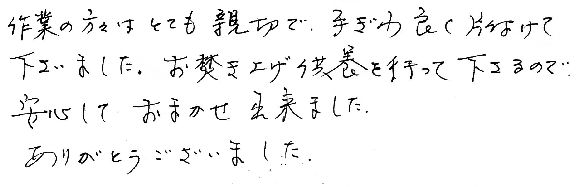 作業の方々はとても親切で、手ぎわ良く片付けて
下さいました。お焚き上げ供養を行って下さるので
安心しておまかせ出来ました。
ありがとうございました。